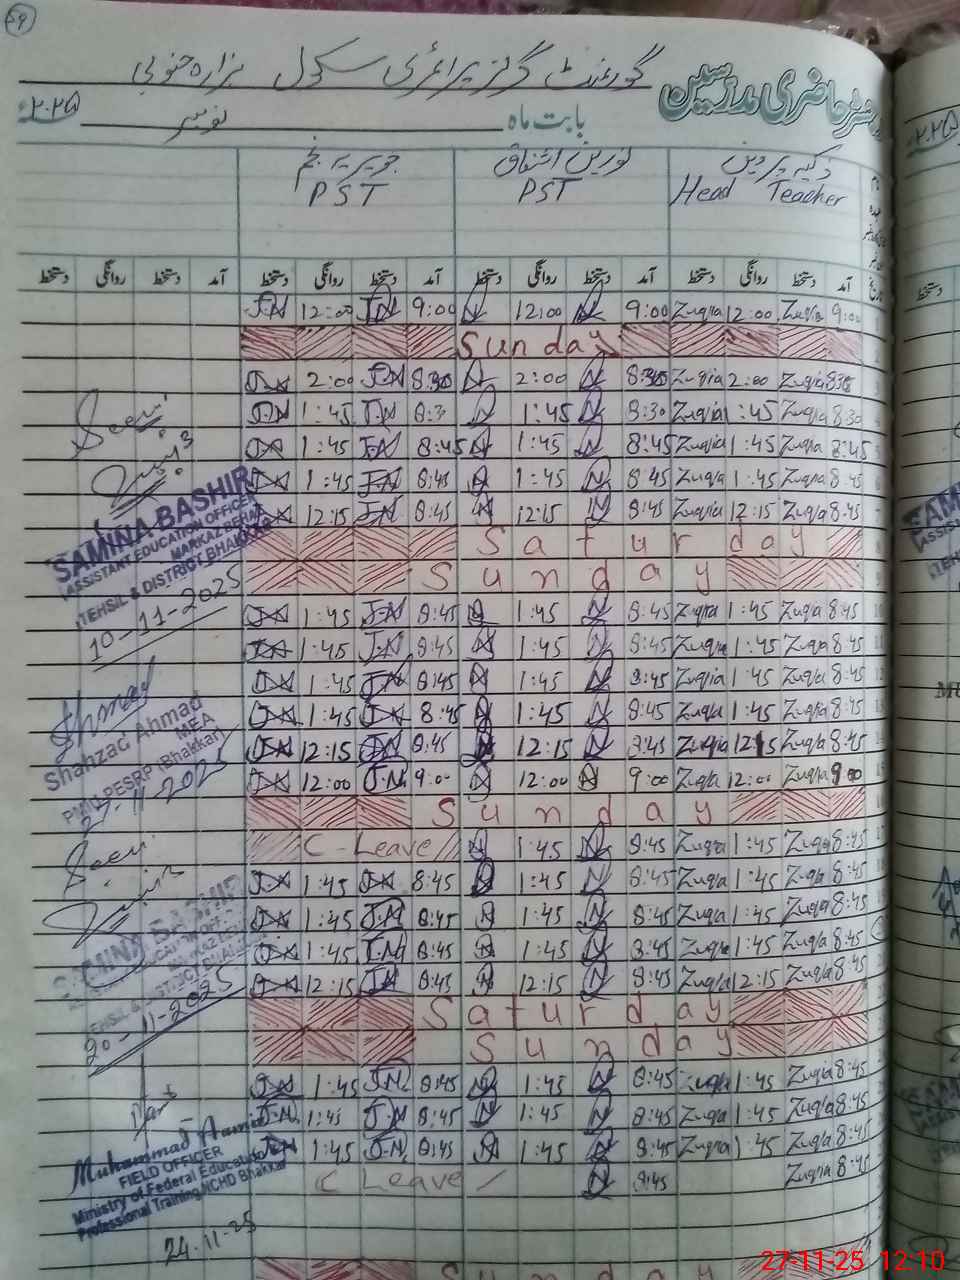 59
گورنمنٹ گرلز پرائمری سکول ہزارہ جنوبی
حاضری مدرسین
بابت ماہ نومبر ۲۰۲۵
۲۰۲۵
ذکیہ پروین نورین اشفاق جویریہ نجم
Head Teacher PST PST
آمد دستخط روانگی دستخط آمد دستخط روانگی دستخط آمد دستخط روانگی دستخط آمد دستخط روانگی دستخط
J.N 12:00 J.N 9:00 N 12:00 N 9:00 Zuqia 12:00 Zuqia 9:00
Sunday
J.N 2:00 J.N 8:30 N 2:00 N 8:30 Zuqia 2:00 Zuqia 8:30
J.N 1:45 J.N 8:3 N 1:45 N 8:30 Zuqia 1:45 Zuqia 8:30
J.N 1:45 J.N 8:45 N 1:45 N 8:45 Zuqia 1:45 Zuqia 8:45
J.N 1:45 J.N 8:45 N 1:45 N 8:45 Zuqia 1:45 Zuqia 8:45
J.N 12:15 J.N 8:45 N 12:15 N 8:45 Zuqia 12:15 Zuqia 8:45
Saturday
Sunday
J.N 1:45 J.N 8:45 N 1:45 N 8:45 Zuqia 1:45 Zuqia 8:45
J.N 1:45 J.N 8:45 N 1:45 N 8:45 Zuqia 1:45 Zuqia 8:45
J.N 1:45 J.N 8:45 N 1:45 N 8:45 Zuqia 1:45 Zuqia 8:45
J.N 1:45 J.N 8:45 N 1:45 N 8:45 Zuqia 1:45 Zuqia 8:45
J.N 12:15 J.N 8:45 N 12:15 N 8:45 Zuqia 12:15 Zuqia 8:45
J.N 12:00 J.N 9:00 N 12:00 N 9:00 Zuqia 12:00 Zuqia 9:00
Sunday
C-Leave N 1:45 N 8:45 Zuqia 1:45 Zuqia 8:45
J.N 1:45 J.N 8:45 N 1:45 N 8:45 Zuqia 1:45 Zuqia 8:45
J.N 1:45 J.N 8:45 N 1:45 N 8:45 Zuqia 1:45 Zuqia 8:45
J.N 1:45 J.N 8:45 N 1:45 N 8:45 Zuqia 1:45 Zuqia 8:45
J.N 12:15 J.N 8:45 N 12:15 N 8:45 Zuqia 12:15 Zuqia 8:45
Saturday
Sunday
J.N 1:45 J.N 8:45 N 1:45 N 8:45 Zuqia 1:45 Zuqia 8:45
J.N 1:45 J.N 8:45 N 1:45 N 8:45 Zuqia 1:45 Zuqia 8:45
J.N 1:45 J.N 8:45 N 1:45 N 8:45 Zuqia 1:45 Zuqia 8:45
C Leave N 8:45 Zuqia 8:45
Sunday
SAMINA BASHIR
ASSISTANT EDUCATION OFFICER
MARKAZ BEHAL
TEHSIL & DISTRICT BHAKKAR
10-11-2025
Shahzad Ahmad
MEA
PMIU PESRP (Bhakkar)
SAMINA BASHIR
TEHSIL & DISTRICT
20-11-2025
Muhammad Aamir
FIELD OFFICER
Ministry of Federal Education &
Professional Training, NCHD Bhakkar
24-11-25
27-11-25 12:10